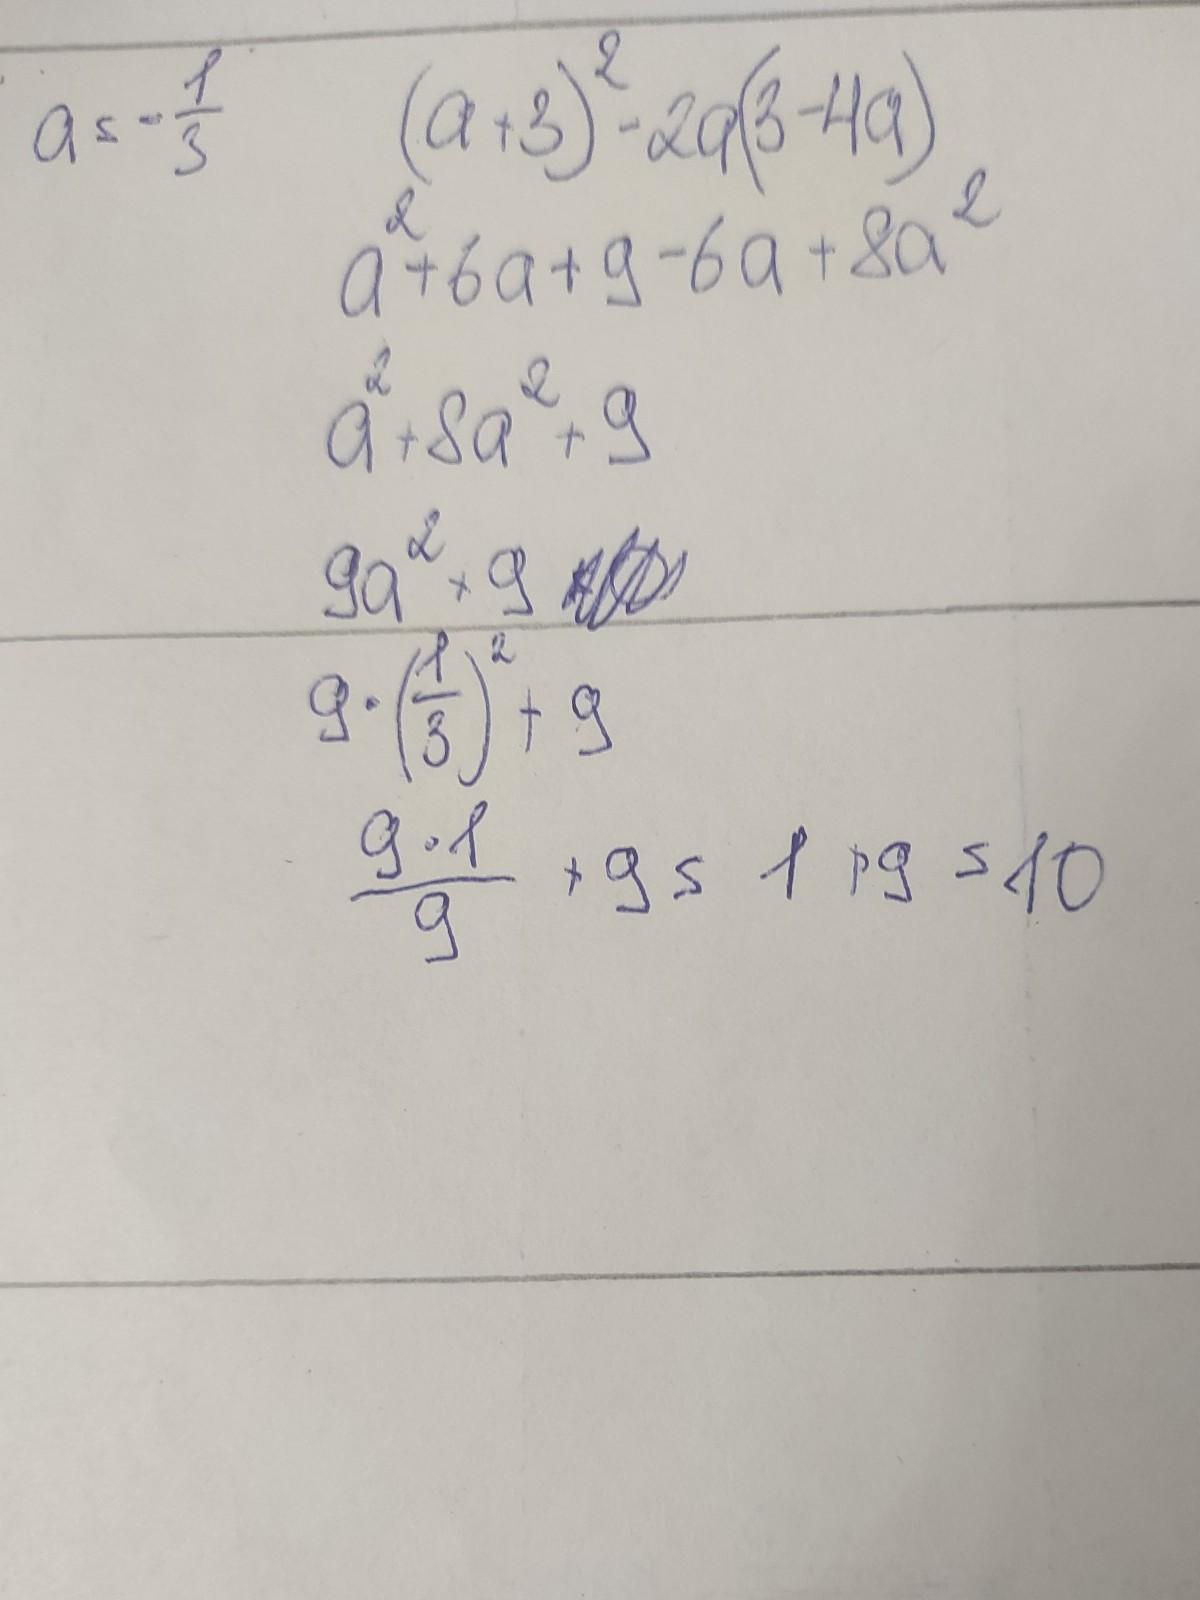 a = -1/3 (a+3)² - 2a(3-4a)
a² + 6a + 9 - 6a + 8a²
a² + 8a² + 9
9a² + 9
9·(1/3)² + 9
9·1/9 + 9 = 1 + 9 = 10